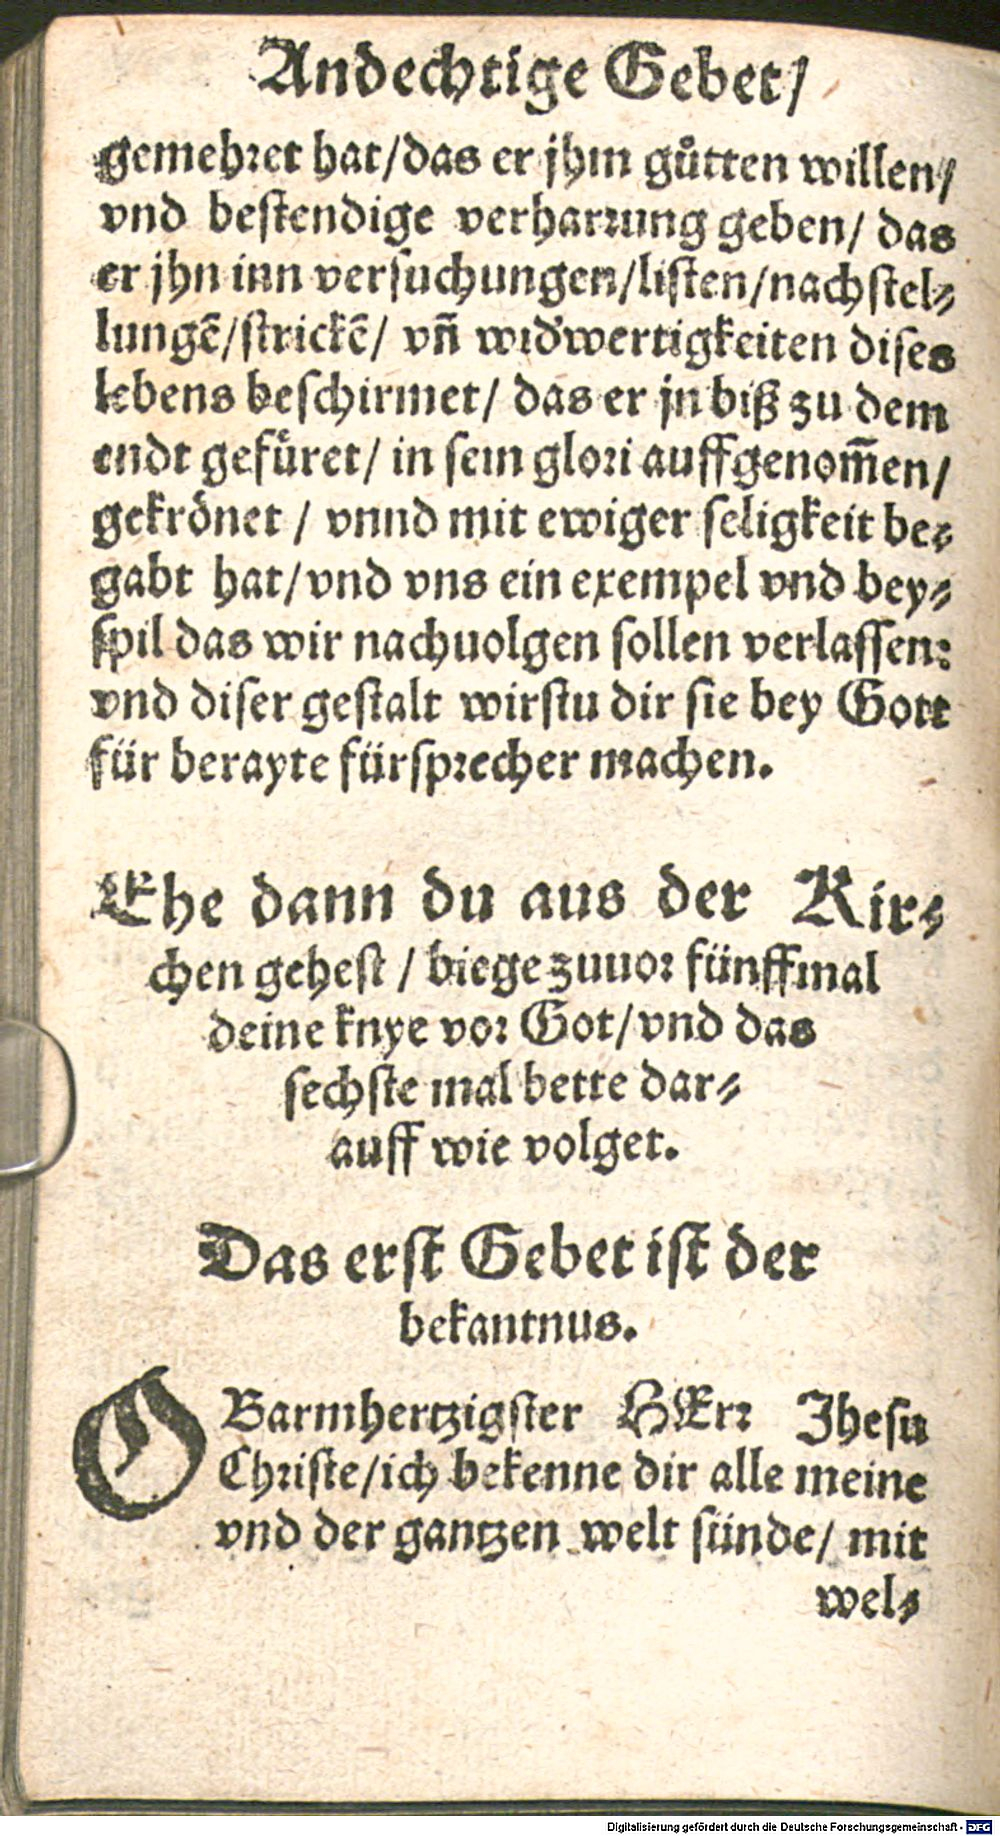 Andechtige Gebet/
gemehret hat/das er jhm gůtten willen/
vnd bestendige verharrung geben/ das
er jhn inn versuchungen/listen/nachstel⸗
lungẽ/strickẽ/ vñ widʼwertigkeiten dises
lebens beschirmet/ das er jn biß zu dem
endt gefüret/ in sein glori auffgenom̃en/
gekrönet / vnnd mit ewiger seligkeit be⸗
gabt hat/vnd vns ein exempel vnd bey⸗
spil das wir nachuolgen sollen verlassen:
vnd diser gestalt wirstu dir sie bey Gott
für berayte fürsprecher machen.
Ehe dann du aus der Kir⸗
chen gehest / biege zuuor fünffmal
deine knye vor Got/vnd das
sechste mal bette dar⸗
auff wie volget.
Das erst Gebet ist der
bekantnus.
O Barmhertzigster HErr Jhesu
Christe/ich bekenne dir alle meine
vnd der gantzen welt sünde/ mit
wel⸗
Digitalisierung gefördert durch die Deutsche Forschungsgemeinschaft - DFG